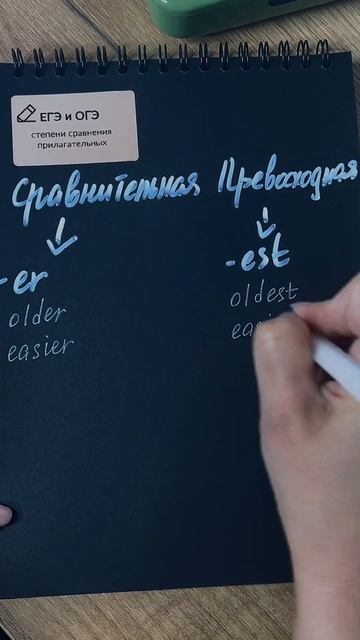 ЕГЭ и ОГЭ
степени сравнения
прилагательных
Сравнительная Превосходная
-er
-est
older
oldest
easier